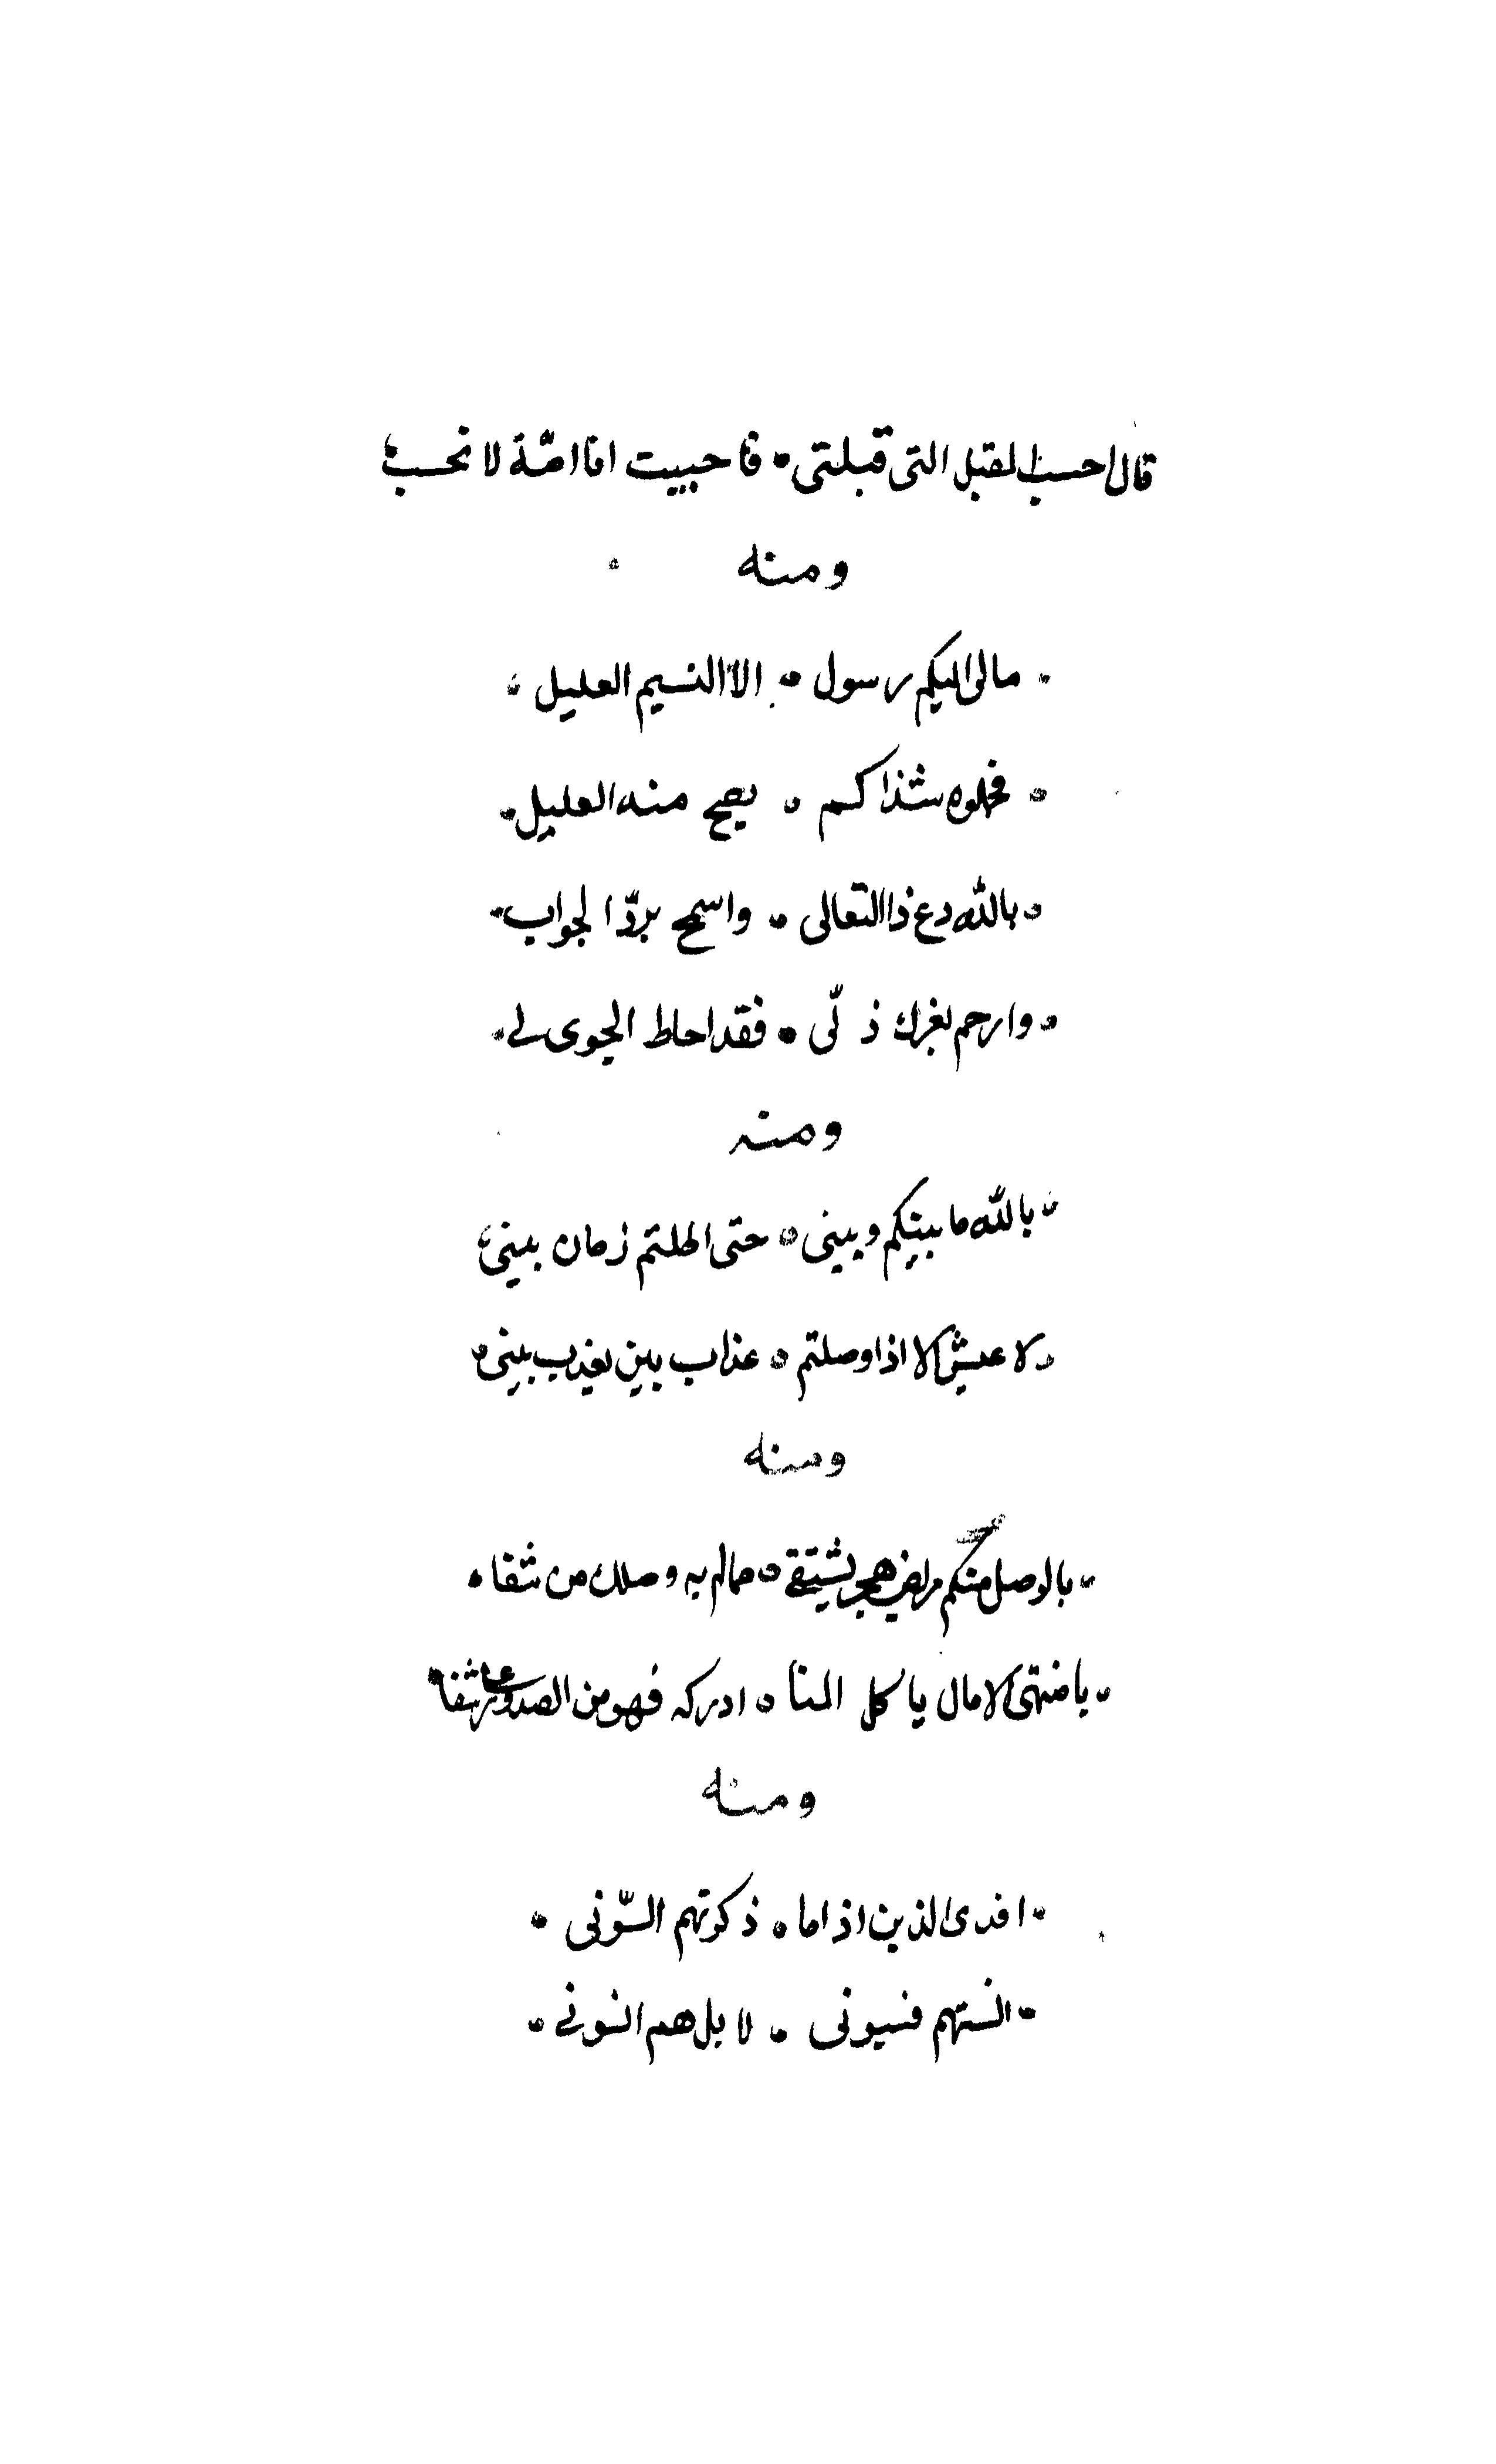 قال احسب القبل التى قبلتى • فاجبيت انا امّة لا نحسب
ومنه
مالى اليكم رسول • الا النسيم العليل
فحملوه شذاكم • يصح منه العليل
بالله دع ذا التعالى • واسمح بردّ الجواب
وارحم بعزك ذلّى • فقد احاط الجوى لى
ومنه
بالله ما بينكم وبينى • حتى اطلتم زمان بينى
لا عيش الا اذا وصلتم • عذاب بين يعذب بينى
ومنه
بالوصل منكم مريض هجر يشتفى • ماله به وصلك من شفاه
يا منتهى الامال يا كل المنا • ادركه فهو من الصدود على شفاه
ومنه
افدى الذين اذا ما • ذكرتهم انسّونى
انستهم فنسيونى • لا بل هم انسونى